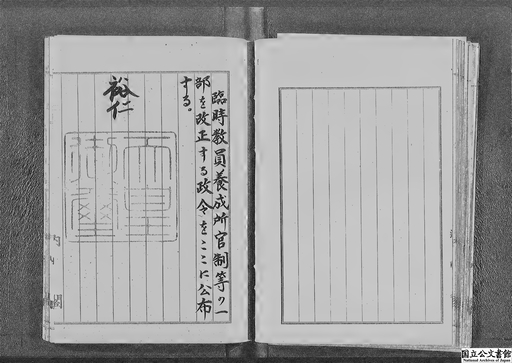 臨時教員養成所官制等の一
部を改正する政令をここに公布
する。
裕仁
天皇
御璽
内閣
国立公文書館
National Archives of Japan